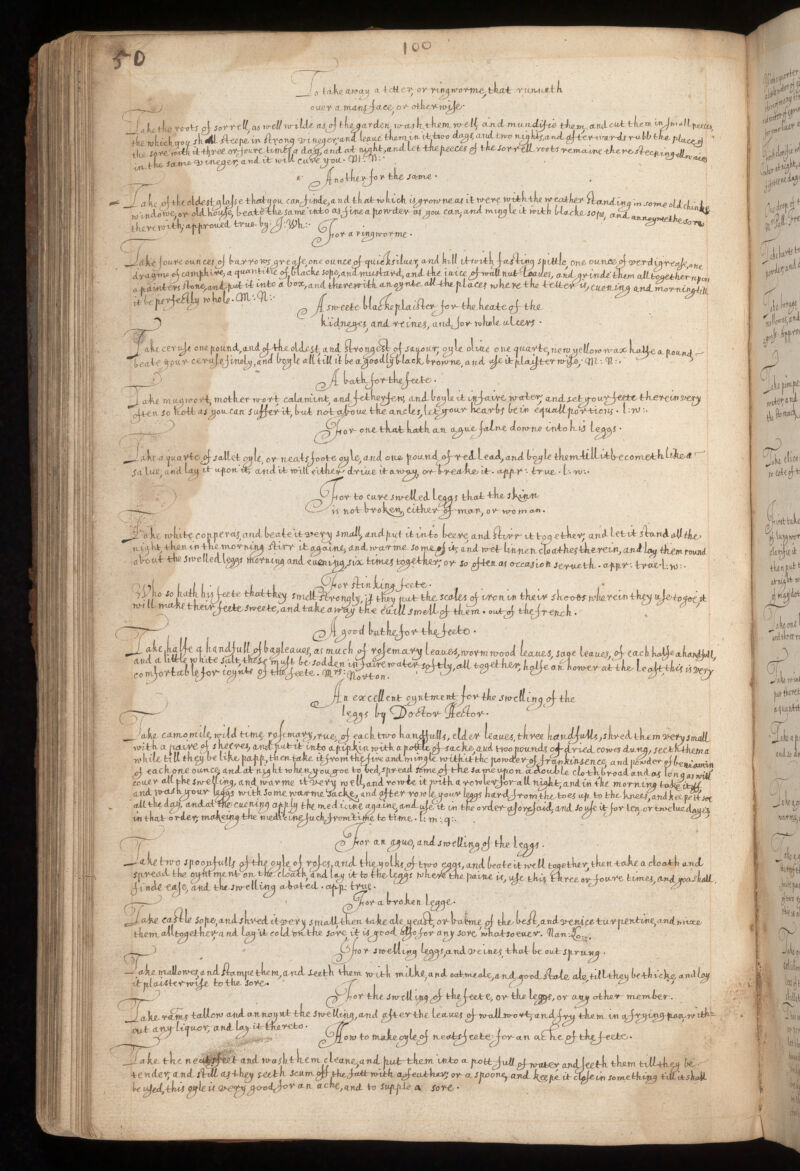 50
100
To take away a tetter, or ringworme, that runneth
ouer a mans face, or otherwise.
Take the roots of sorrell, as well wilde as of the garden, wash them well, and mundifie them, and cut them in small peeces,
the which you shall steepe in strong vineger, and leaue them in it, two dayes, and two nights, and afterwards rubb the place of
the sore with it three or foure times a day, and at night, and let the peeces of the sorrell roots remaine there steeping allwaies
in the same vineger, and it will cure you.
Another for the same.
Take of the oldest glasse that you can finde, and that which is growne as it were with the weather standing in some old
windowe, or old house, beate the same into as fine a powder as you can, and mingle it with blacke sope, and annoynt the sore
therewith, approued true. by
For a ringworme.
Take foure ounces of barrowes grease, one ounce of quicksiluer, and kill it with fasting spittle, one ounce of verdigrease, one
dragme of camphire, a quantitie of blacke sope, and mustard, and the iuice of wallnut leaues, and grinde them all together upon
a painters stone, and put it into a box, and therewith anoynte all the places where the tetter is, euening and morning till
it be perfectly whole.
A sweete blacke plaister for the heate of the
kidneyes, and reines, and for whole ulcers.
Take ceruse one pound, and of the oldest and strongest of sauour, oyle oliue one quarte, new yellow wax halfe a pound
beate your ceruse finely, and boyle all till it be a goodly black browne, and use it plaister wise.
A bath for the feete.
Take mugwort, motherwort, calamint, and fetherfew, and boyle it in faire water, and set your feete therein very
often so hott as you can suffer it, but not aboue the ancles, let your hearbs be in equall portions. l:w:.
For one that hath an ague falne downe into his leggs.
Take a quarte of sallet oyle, or neatsfoote oyle, and one pound of red lead, and boyle them till it becometh like a
salue, and lay it upon it, and it will either driue it away, or breake it. appr: true. l:w:.
For to cure swelled leggs that the skinn
is not broken, either of man, or woman.
Take white copperas, and beate it very small, and put it into beere, and stirr it together, and let it stand all the
night, then in the morning stirr it againe, and warme some of it, and wet linnen cloathes therein, and lay them round
about the swelled leggs morning and euening, six times together, or so often as occasion serueth. appr: true. l:w:.
For stinking feete.
Who so hath his feete that they smell strongly, if they put the scales of iron in their shooes wherein they use to goe, it
will make their feete sweete, and take away the euill smell of them. out of the french.
A good bathe for the feete.
Take halfe a handfull of bayleaues, as much of rosemary leaues, wormwood leaues, sage leaues, of each halfe a handfull,
and a little white salt, these must be sodden in faire water softly, all together, halfe an hower at the least, this is very
comfortable for ioynts of the feete. Mrs: Norton.
An excellent oyntment for the swelling of the
leggs by Doctor Hector.
Take camomile, wild time, rosemary, rue, of each two handfulls, elder leaues, three handfulls, shred them very small
with a paire of sheeres, and put it into a pipkin with a pottle of sacke, and two pounds of dried cowes dung, seeth them a
while till they be like papp, then take it from the fire and mingle with it the powder of frankinsence, and powder of beniamin
of each one ounce, and at night when you goe to bed, spread some of the same upon a double cloth broad and as long as will
couer all the swelling, and warme it very well, and rowle it with a rowler for all night, and in the morning take it off,
and wash your leggs with some warme sacke, and after rowle your leggs hard from the toes up to the knees, and keepe it so
all the day, and at the euening apply the medicine againe, and use it in the order aforesaid, and so use it for ten or twelue dayes
in that order, making the medicine fresh from time to time. l:m:q:.
For an ague, and swelling of the leggs.
Take two spoonfulls of the oyle of roses, and the yolks of two eggs, and beate it well together, then take a cloath and
spread the oyntment on the cloath, and lay it to the leggs where the paine is, use this three or foure times, and you shall
finde ease, and the swelling abated. app: true.
For a broken legge.
Take castle sope, and shred it very small, then take ale yeast, or balme of the best, and venice turpentine, and mixe
them all together and lay it cold on the sore, it is good also for any sore whatsoeuer.
For swelling leggs, and veines, that be out sprung.
Take mallowes, and stampe them, and seeth them with milke, and oatmeale, and good stale ale, till they be thicke, and lay
it plaisterwise to the sore.
For the swelling of the feete, or the leggs, or any other member.
Take rams tallow and annoynt the swelling, and after the leaues of wallwort, and fry them in a frying pan with
out any liquor, and lay it thereto.
How to make oyle of neatsfeete for an ache of the feete.
Take the neatsfeet and wash them cleane, and put them into a pott full of water and seeth them till they be
tender, and still as they seeth scum off the fatt with a feather, or a spoone, and keepe it close in something till it shall
be used, this oyle is very good for an ache, and to supple a sore.